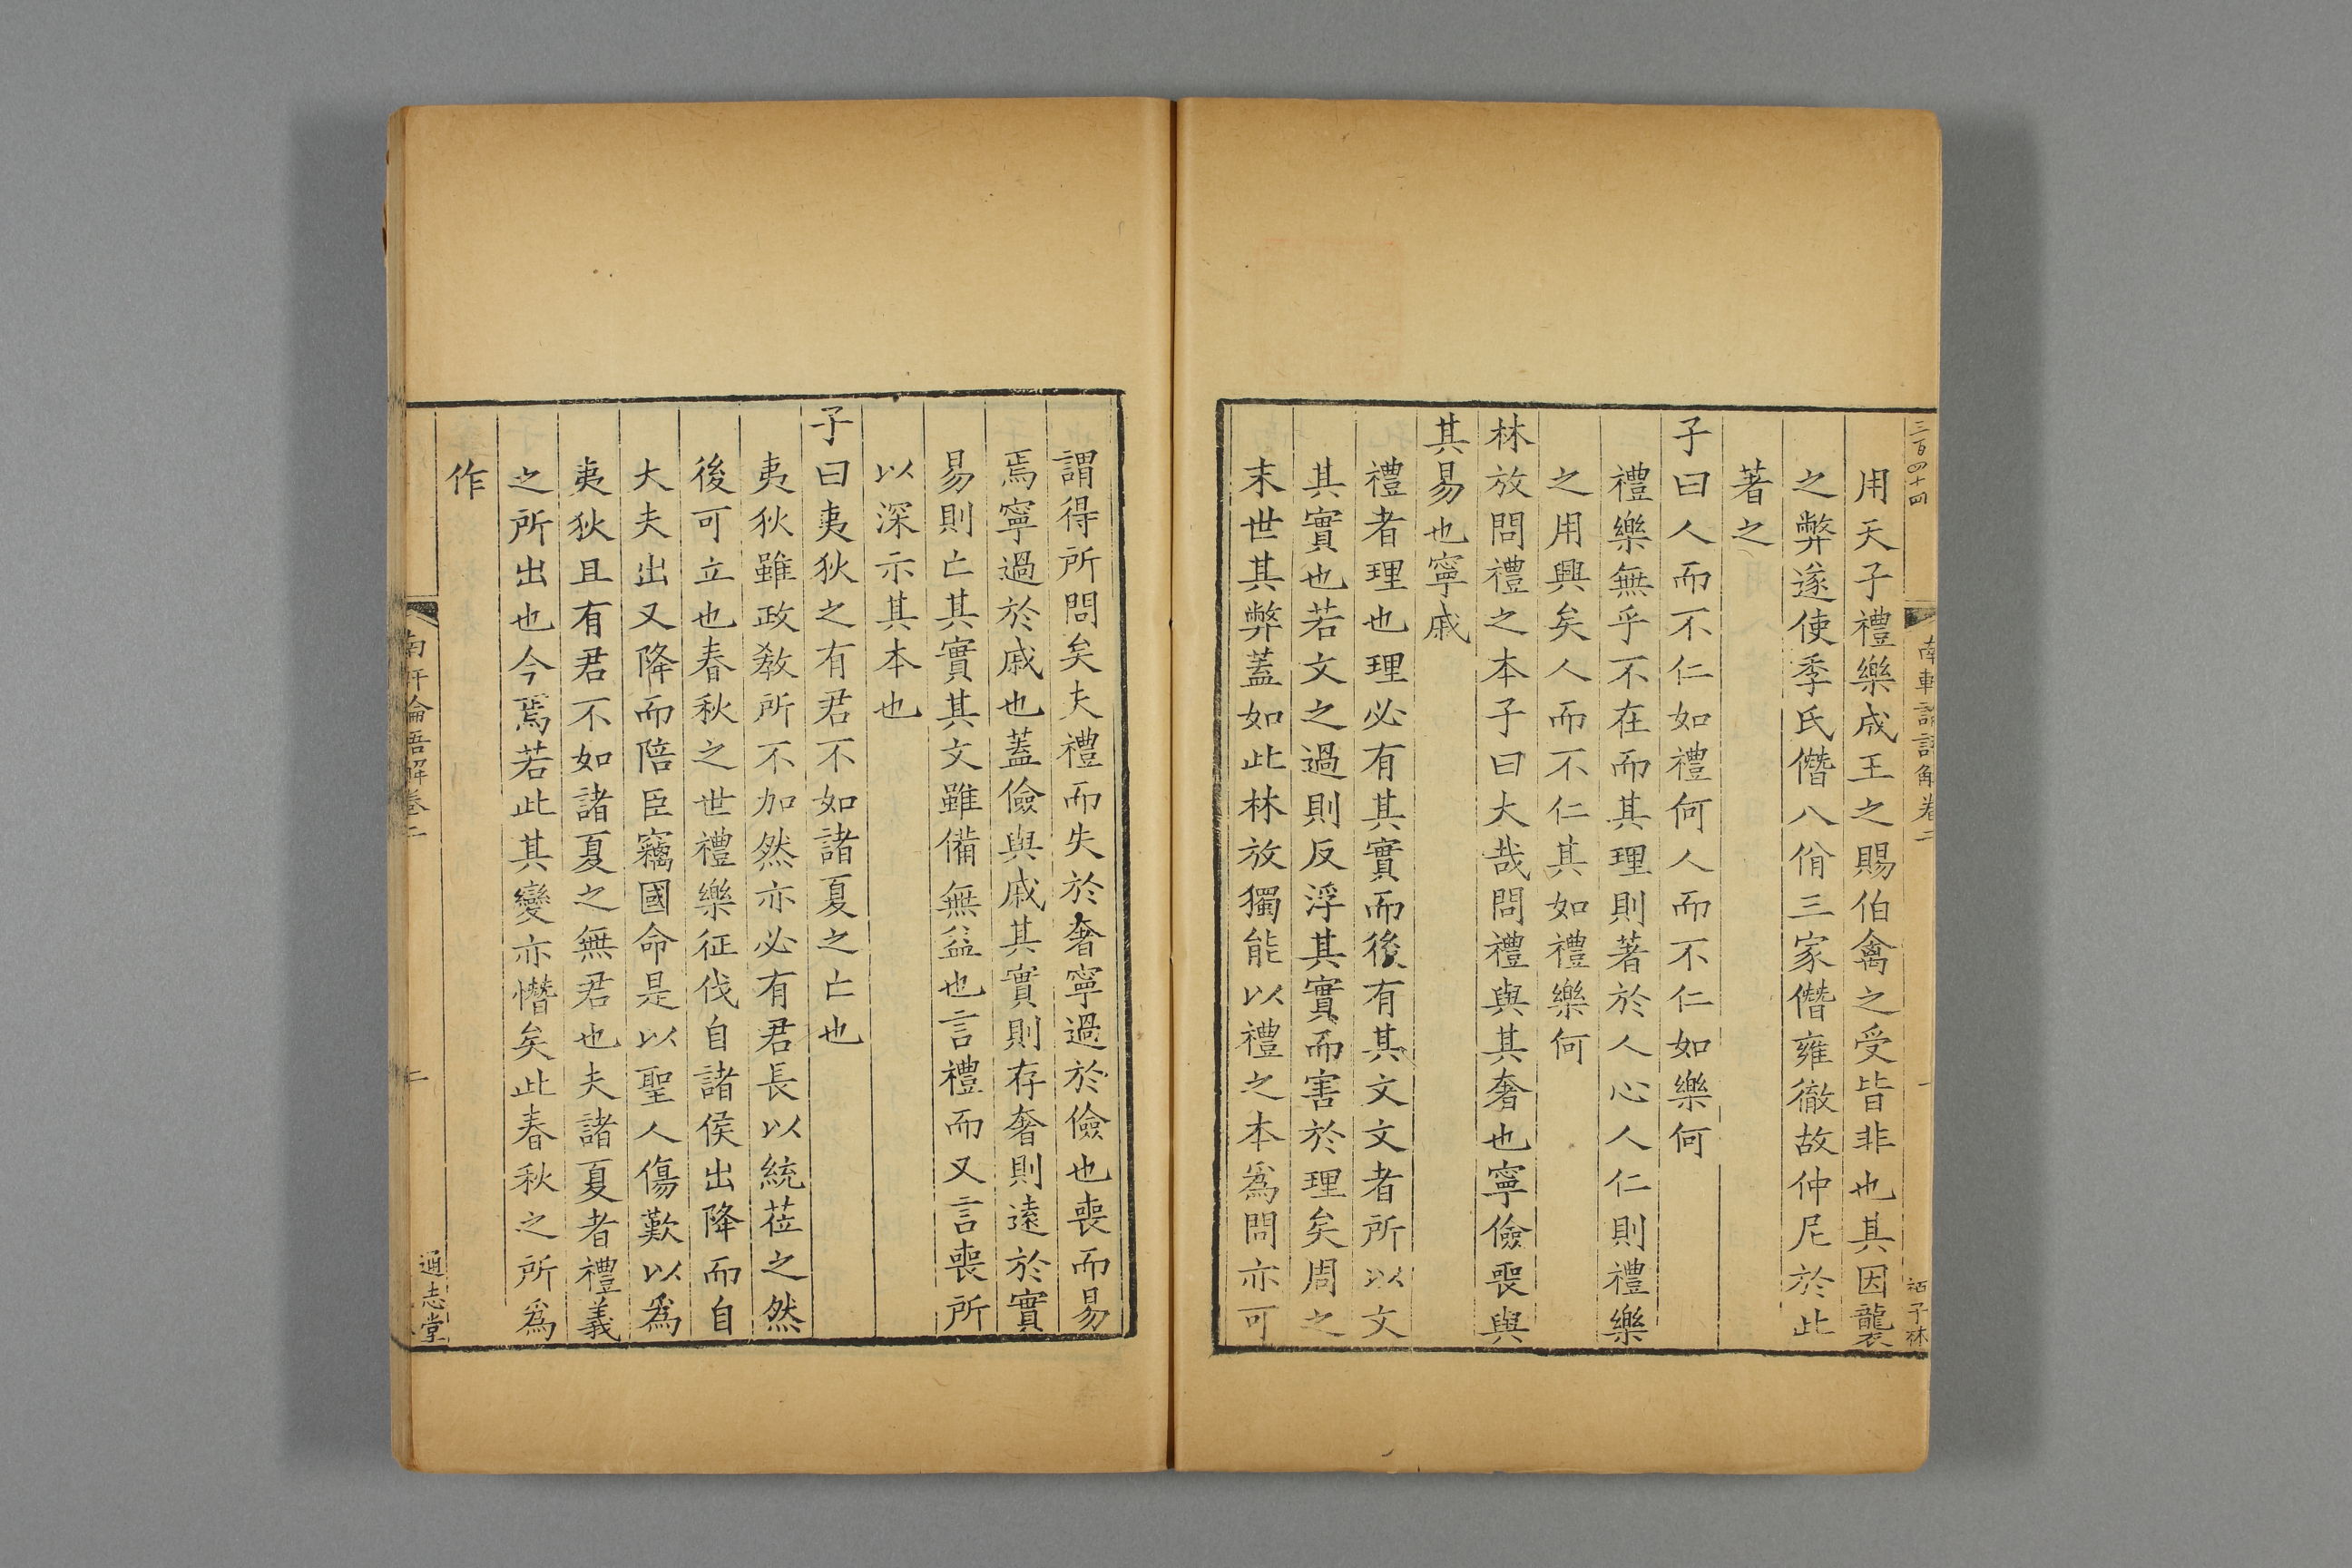 三百四十四
南軒論語解卷二
一
用天子禮樂成王之賜伯禽之受皆非也其因襲
之弊遂使季氏僭八佾三家僭雍徹故仲尼於此
著之
子曰人而不仁如禮何人而不仁如樂何
禮樂無乎不在而其理則著於人心人仁則禮樂
之用興矣人而不仁其如禮樂何
林放問禮之本子曰大哉問禮與其奢也寧儉喪與
其易也寧戚
禮者理也理必有其實而後有其文文者所以文
其實也若文之過則反浮其實而害於理矣周之
末世其弊蓋如此林放獨能以禮之本為問亦可
謂得所問矣夫禮而失於奢寧過於儉也喪而易
焉寧過於戚也蓋儉與戚其實則存奢則遠於實
易則亡其實其文雖備無益也言禮而又言喪所
以深示其本也
子曰夷狄之有君不如諸夏之亡也
夷狄雖政教所不加然亦必有君長以統莅之然
後可立也春秋之世禮樂征伐自諸侯出降而自
大夫出又降而陪臣竊國命是以聖人傷歎以為
夷狄且有君不如諸夏之無君也夫諸夏者禮義
之所出也今焉若此其變亦憯矣此春秋之所為
作
南軒論語解卷二
二
通志堂